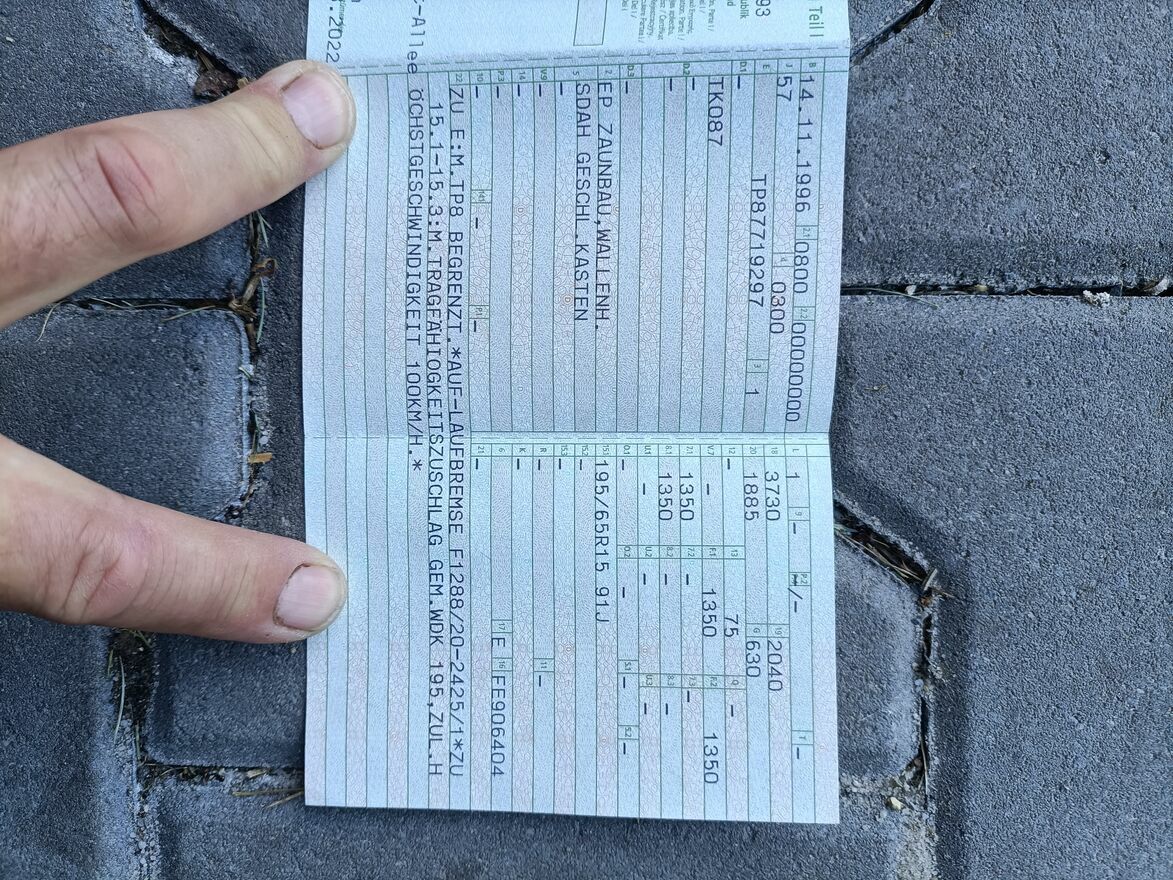 Teil I
93
-Allee
.2022
B 14.11.1996 2.1 0800 2.2 00000000
J 57 4 0300
E TP87719297 3 1
D.1 –
TK087
D.2 –
–
D.3 –
2 EP ZAUNBAU,WALLENH.
5 SDAH GESCHL.KASTEN
–
V.9 –
14 –
P.3 –
10 – 14.1 – P.1 –
L 1 9 – P.2 –/– T –
18 3730 19 2040
20 1885 G 630
12 – 13 75 Q –
V.7 – F.1 1350 F.2 1350
7.1 1350 7.2 – 7.3 –
8.1 1350 8.2 – 8.3 –
U.1 – U.2 – U.3 –
O.1 – O.2 – S.1 – S.2 –
15.1 195/65R15 91J
15.2 –
15.3 –
R – 11 –
K –
6 – 17 E 16 FE906404
21 –
22 ZU E:M.TP8 BEGRENZT.*AUF-LAUFBREMSE F1288/20-2425/1*ZU
15.1-15.3:M.TRAGFÄHIOGKEITSZUSCHLAG GEM.WDK 195,ZUL.H
ÖCHSTGESCHWINDIGKEIT 100KM/H.*